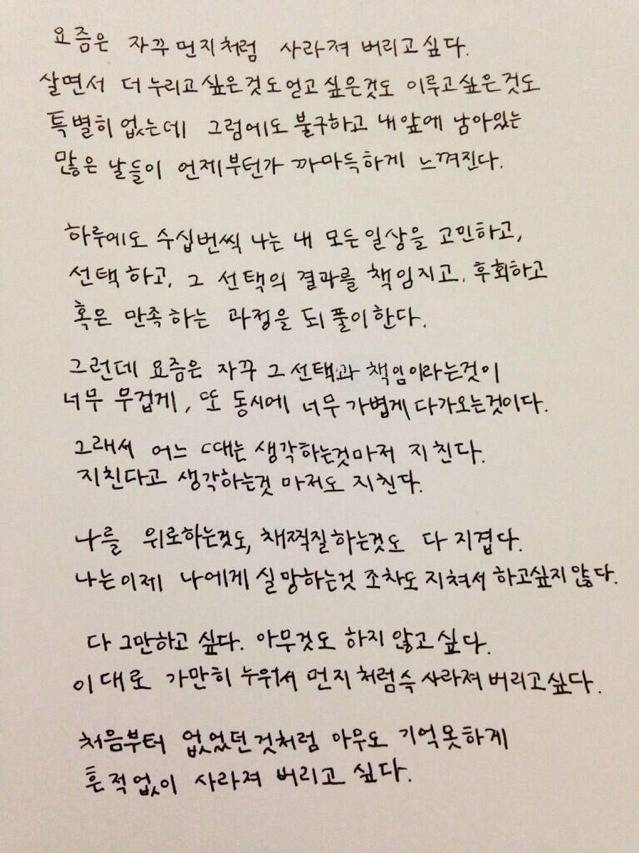 요즘은 자꾸 먼지처럼 사라져 버리고 싶다.
살면서 더 누리고 싶은것도 얻고 싶은것도 이루고싶은것도
특별히 없는데 그럼에도 불구하고 내 앞에 남아있는
많은 날들이 언제부턴가 까마득하게 느껴진다.
하루에도 수십번씩 나는 내 모든 일상을 고민하고,
선택하고, 그 선택의 결과를 책임지고, 후회하고
혹은 만족하는 과정을 되풀이한다.
그런데 요즘은 자꾸 그 선택과 책임이라는것이
너무 무겁게, 또 동시에 너무 가볍게 다가오는것이다.
그래서 어느 때는 생각하는것마저 지친다.
지친다고 생각하는것 마저도 지친다.
나를 위로하는것도, 채찍질하는것도 다 지겹다.
나는 이제 나에게 실망하는것 조차도 지쳐서 하고싶지 않다.
다 그만하고 싶다. 아무것도 하지 않고 싶다.
이대로 가만히 누워서 먼지처럼 슥 사라져 버리고싶다.
처음부터 없었던 것처럼 아무도 기억못하게
흔적없이 사라져 버리고 싶다.